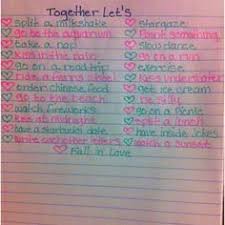 Together Let's
split a milkshake
go to the aquarium
take a nap
kiss in the rain
go on a road trip
ride a
order chinese food
go to the beach
watch fireworks
kiss at midnight
have a starbucks date
write eachother letters
stargaze
Paint something
slow dance
go on a run
exercise
kiss underwater
get ice cream
be silly
go on a picnic
split a lunch
have inside jokes
watch a sunset
Fall in Love